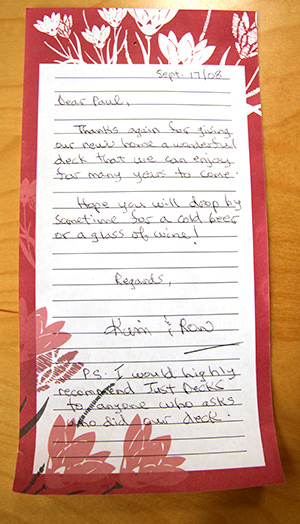 Sept. 17/08
Dear Paul,
Thanks again for giving
our new home a wonderful
deck that we can enjoy
for many years to come.
Hope you will drop by
sometime for a cold beer
or a glass of wine!
Regards,
Kim & Ron
P.S. I would highly
recommend Just Decks
to anyone who asks
who did our deck.